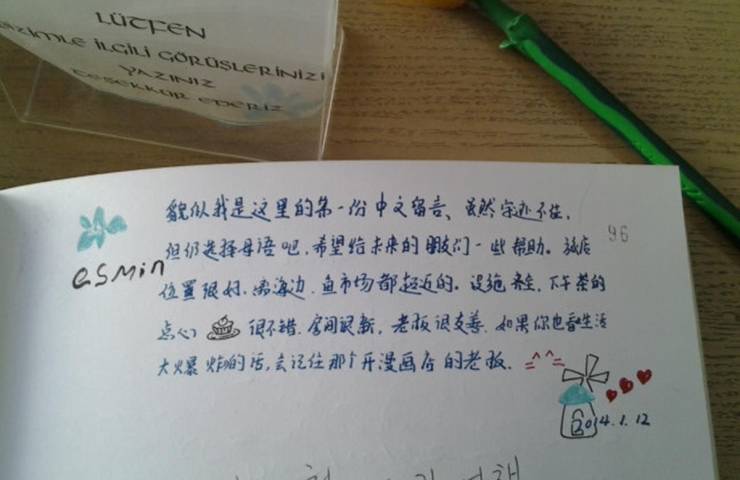 LÜTFEN
BİZİMLE İLGİLİ GÖRÜŞLERİNİZİ
YAZINIZ
TEŞEKKÜR EDERİZ
貌似我是这里的第一份中文留言、虽然字迹不佳,
但仍选择母语吧,希望给未来的朋友们一些帮助。旅店
96
esmin
位置很好,离海边、鱼市场都超近的。设施齐全,下午茶的
点心 很不错,房间很新,老板很友善,如果你也看生活
大爆炸的话,会记住那个开漫画店的老板. =^^=
2014.1.12